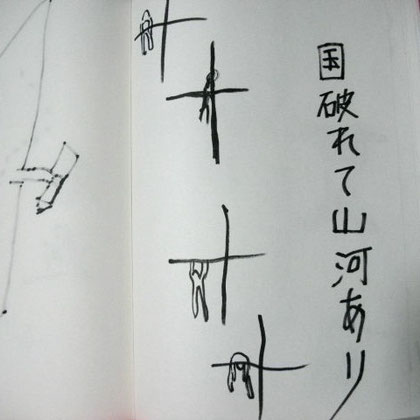 国破れて山河あり